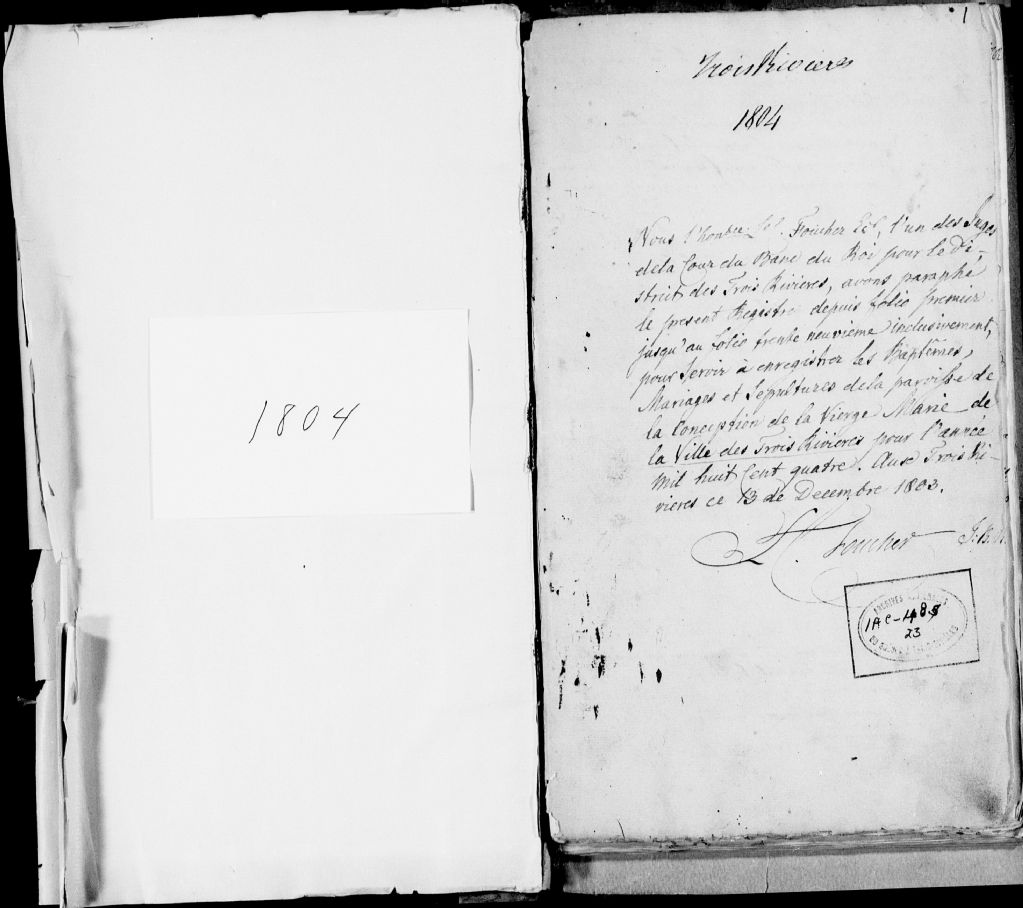 1804
1
Trois Rivieres
1804
Nous l'honble. Ls. Foucher Ecr, l'un des Juges
dela Cour du Banc du Roi pour le Di-
strict des Trois Rivieres, avons paraphé
le present Registre depuis folio premier
jusqu'au folio trente neuvieme inclusivement,
pour servir à enregistrer les Baptêmes,
Mariages et Sepultures dela paroisse de
la Conception de la Vierge Marie de
la Ville des Trois Rivieres pour l'année
mil huit Cent quatre. Aux Trois Ri-
vieres ce 13 de Decembre 1803.
L. Foucher J.B.R.
ARCHIVES
1AC-48
23